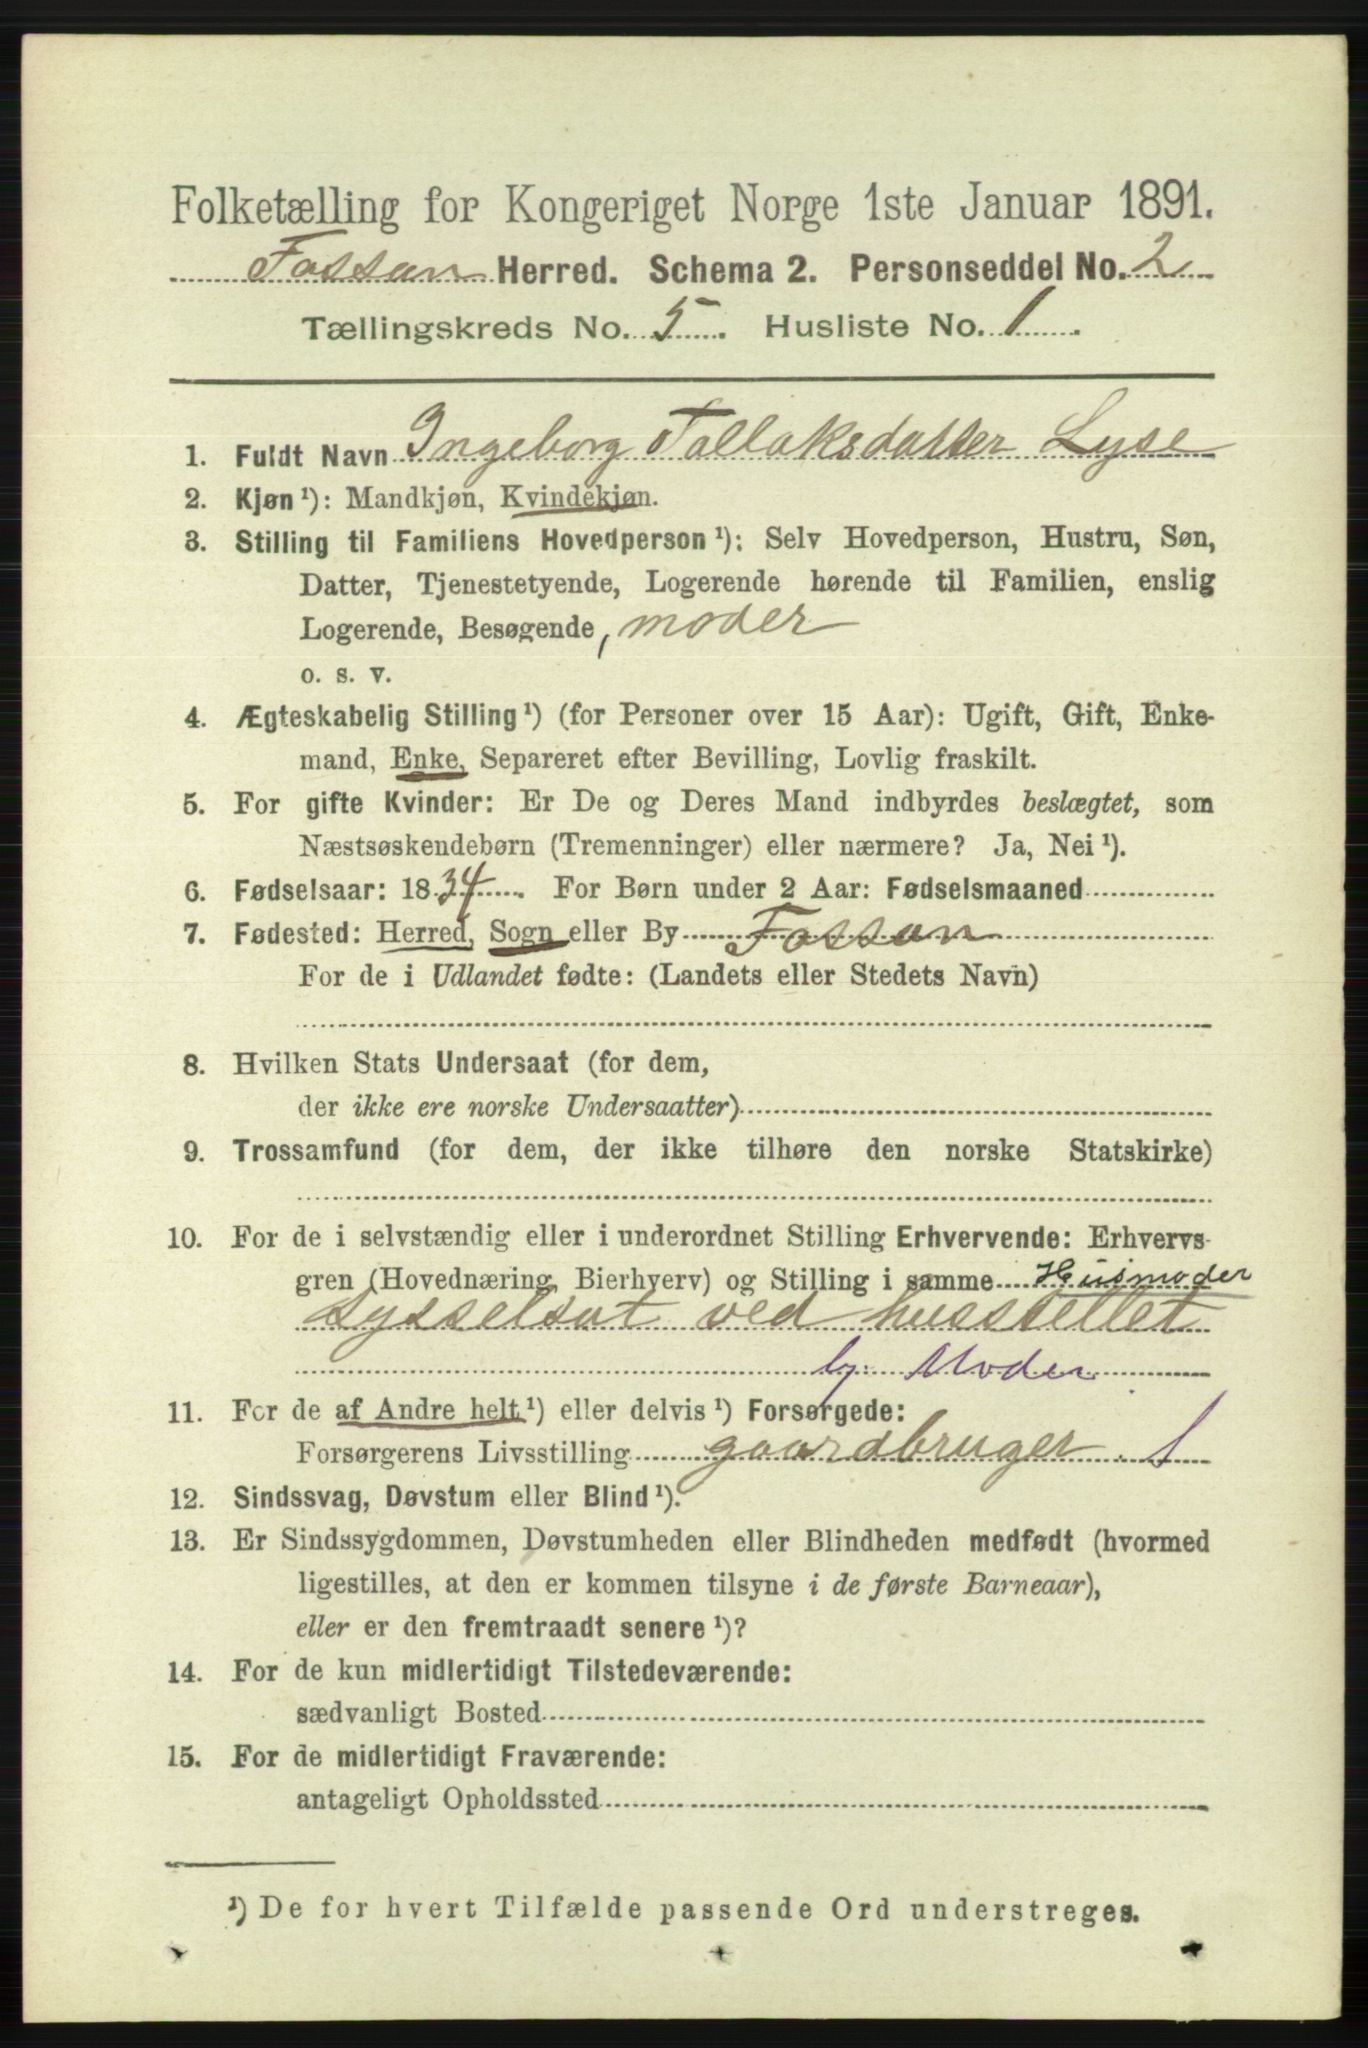 Folketælling for Kongeriget Norge 1ste Januar 1891.
Fossan Herred. Schema 2. Personseddel No. 2
Tællingskreds No. 5. Husliste No. 1.
1. Fuldt Navn Ingeborg Tollaksdatter Lyse
2. Kjøn ¹): Mandkjøn, Kvindekjøn.
3. Stilling til Familiens Hovedperson ¹): Selv Hovedperson, Hustru, Søn,
Datter, Tjenestetyende, Logerende hørende til Familien, enslig
Logerende, Besøgende, moder
o. s. v.
4. Ægteskabelig Stilling ¹) (for Personer over 15 Aar): Ugift, Gift, Enke-
mand, Enke, Separeret efter Bevilling, Lovlig fraskilt.
5. For gifte Kvinder: Er De og Deres Mand indbyrdes beslægtet, som
Næstsøskendebørn (Tremenninger) eller nærmere? Ja, Nei ¹).
6. Fødselsaar: 1834. For Børn under 2 Aar: Fødselsmaaned
7. Fødested: Herred, Sogn eller By Fossan
For de i Udlandet fødte: (Landets eller Stedets Navn)
8. Hvilken Stats Undersaat (for dem,
der ikke ere norske Undersaatter)
9. Trossamfund (for dem, der ikke tilhøre den norske Statskirke)
10. For de i selvstændig eller i underordnet Stilling Erhvervende: Erhvervs-
gren (Hovednæring, Bierhverv) og Stilling i samme Husmoder
Sysselsat ved husstellet
Moder
11. For de af Andre helt ¹) eller delvis ¹) Forsørgede:
Forsørgerens Livsstilling gaardbruger.
12. Sindssvag, Døvstum eller Blind ¹).
13. Er Sindssygdommen, Døvstumheden eller Blindheden medfødt (hvormed
ligestilles, at den er kommen tilsyne i de første Barneaar),
eller er den fremtraadt senere ¹)?
14. For de kun midlertidigt Tilstedeværende:
sædvanligt Bosted
15. For de midlertidigt Fraværende:
antageligt Opholdssted
¹) De for hvert Tilfælde passende Ord understreges.